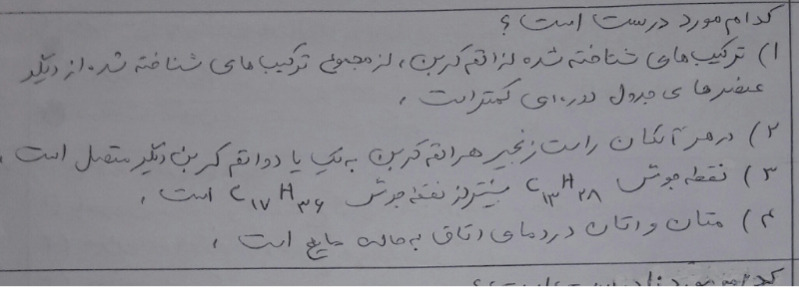 کدام مورد درست است؟
۱) ترکیب‌های شناخته شده از اتم کربن، از مجموع ترکیب‌های شناخته شده از دیگر
عنصرهای جدول دوره‌ای کمتر است.
۲) در هر آلکان راست زنجیر هر اتم کربن به یک یا دو اتم کربن دیگر متصل است.
۳) نقطه جوش C۱۳H۲۸ بیشتر از نقطه جوش C۱۷H۳۶ است.
۴) متان و اتان در دمای اتاق به حالت مایع است.